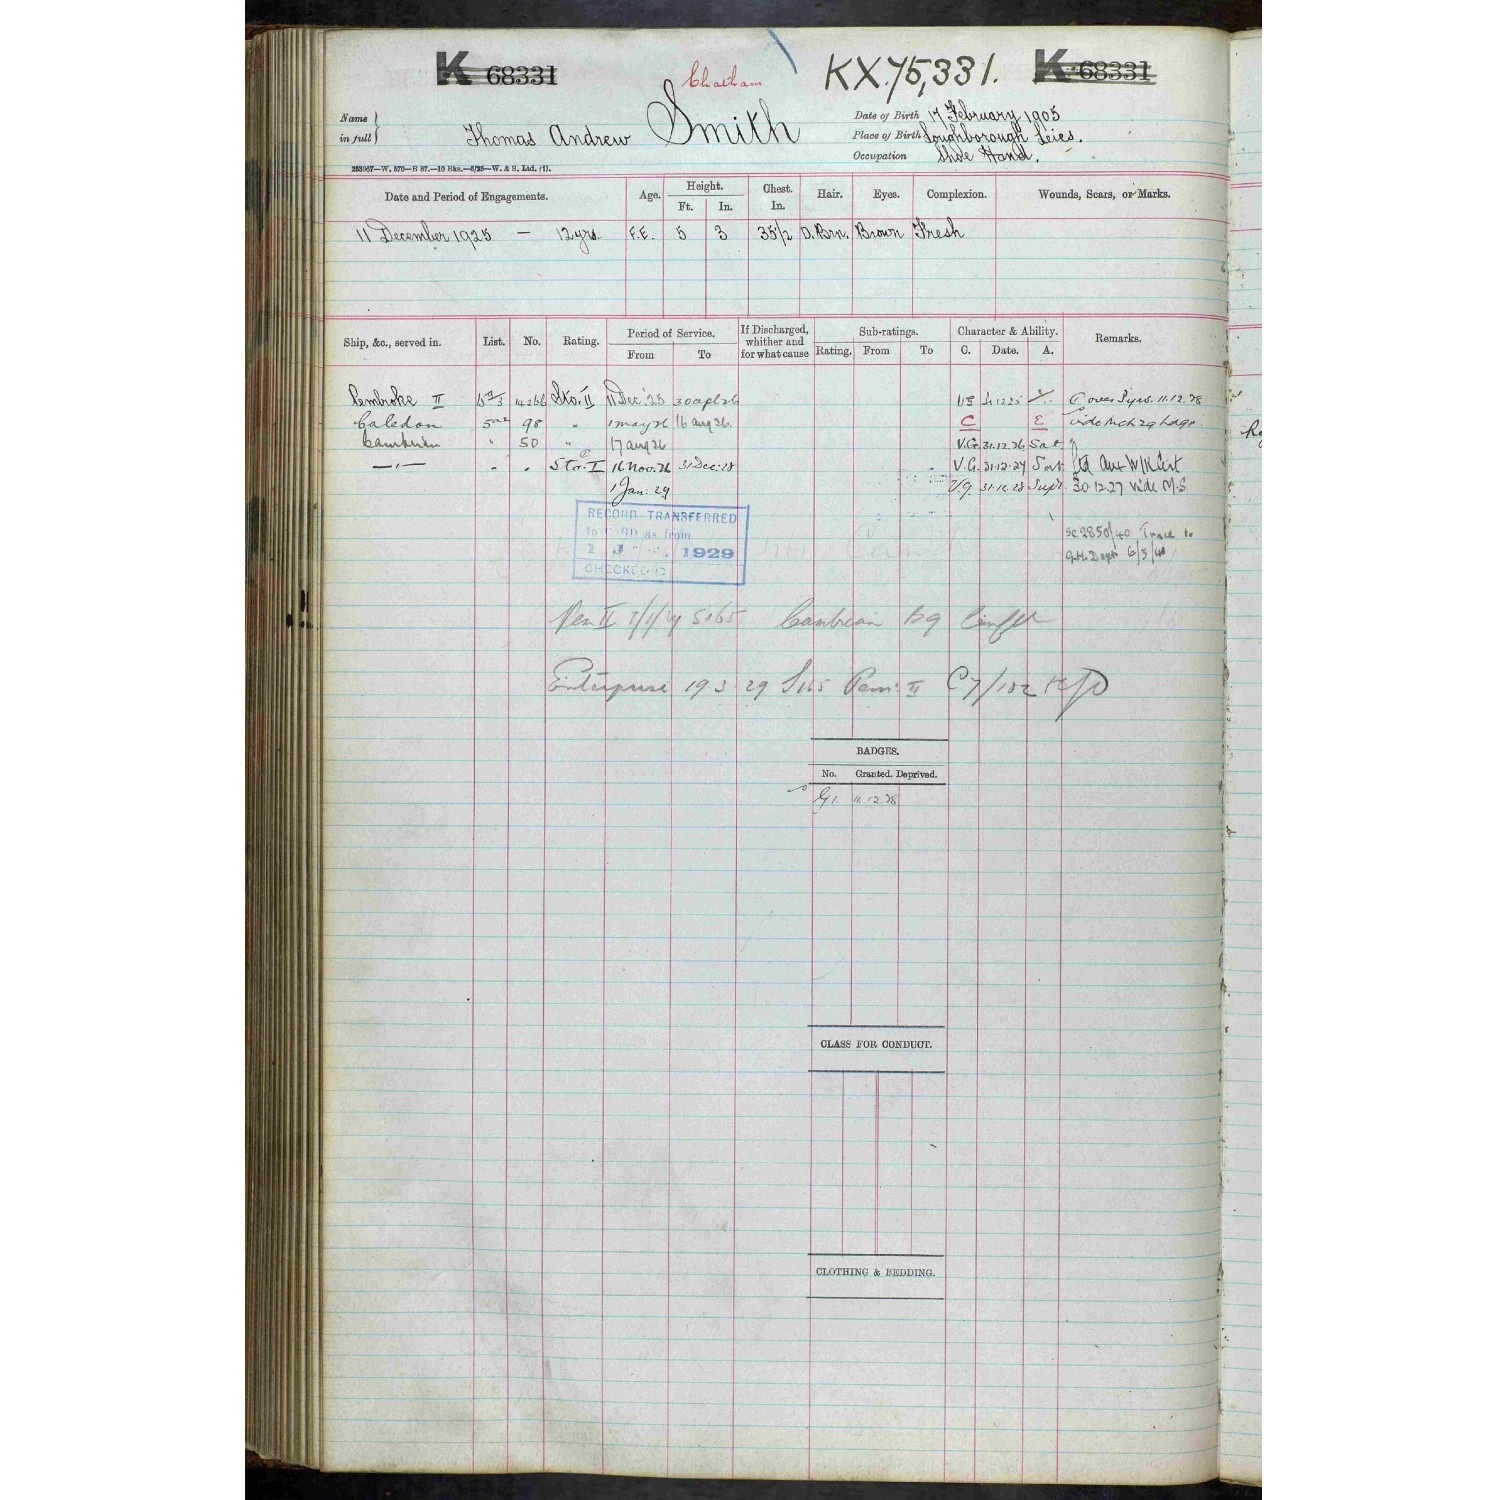 K 68331 Chatham KX.75,331. K 68331
Name in full } Thomas Andrew Smith
Date of Birth 17 February 1905
Place of Birth Loughborough Leics.
Occupation Shoe Hand.
253067—W. 570—B 87.—10 Bks.—5/25—W. & S. Ltd. (1).
Date and Period of Engagements. Age. Height. Ft. In. Chest. In. Hair. Eyes. Complexion. Wounds, Scars, or Marks.
11 December 1925 — 12 yrs. F.E. 5 3 35½ D. Brn. Brown Fresh
Ship, &c., served in. List. No. Rating. Period of Service. From To If Discharged, whither and for what cause Sub-ratings. Rating. From To Character & Ability. C. Date. A. Remarks.
Pembroke II 14266 Sto. II 11 Dec. 25 30 apl 26 VG 31 12 25 11.12.28
Caledon 5 98 " 1 may 26 16 aug 26. C E vide
Cambrian " 50 " 17 aug 26 V.G. 31.12.26 Sat
— " — " " Sto. I 16 Nov. 26 31 Dec: 28 V.G. 31.12.27 Sat
1 Jan: 29 V.G. 31.12.28 Supr 30.12.27 vide M.S.
RECORD TRANSFERRED
to CARD as from
1 1929
CHECKED
SC 2850/40 Trace to
Dept 6/5/40
Pen II 5165 Cambrian
Enterprise 19 3 29 Pem: II C7/182
BADGES.
No. Granted. Deprived.
G1. 11.12.28
CLASS FOR CONDUCT.
CLOTHING & BEDDING.